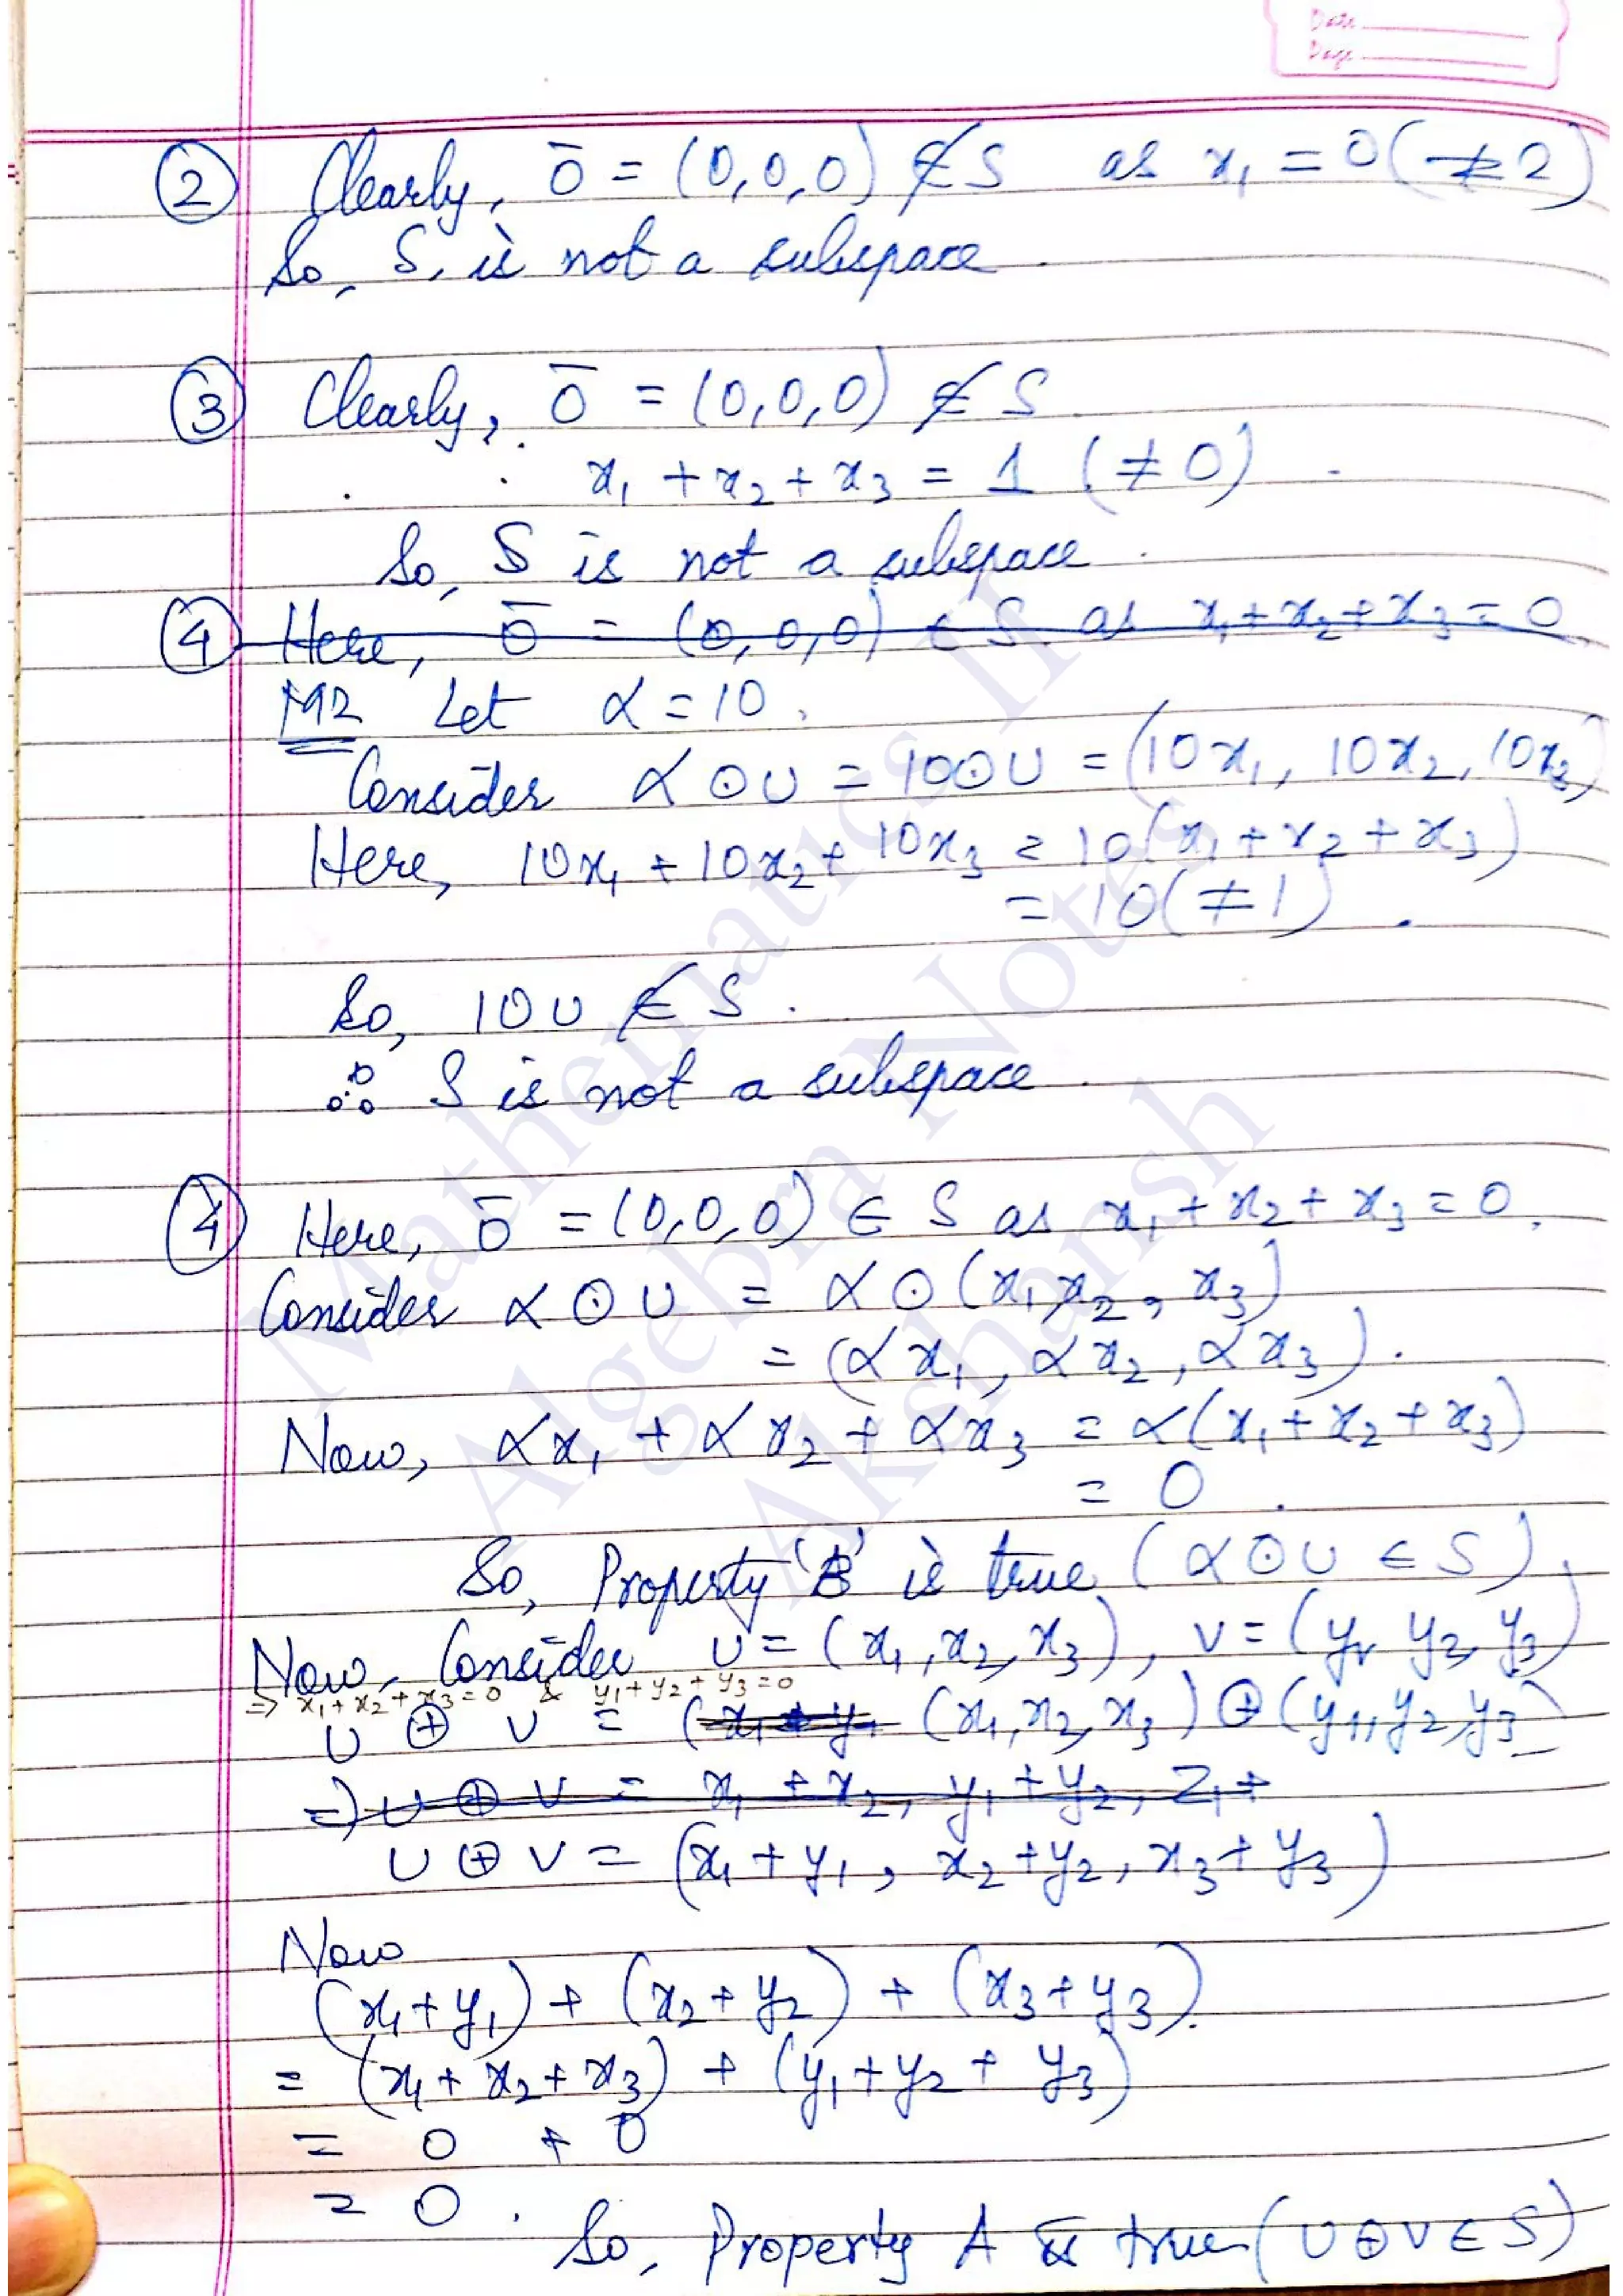 Date
Page
② Clearly, ō = (0,0,0) ∉ S as x₁ = 0 (≠2)
So, S, is not a subspace.
③ Clearly, ō = (0,0,0) ∉ S.
x₁ + x₂ + x₃ = 1 (≠0)
So, S is not a subspace.
④ Here, ō = (0,0,0) ∈ S as x₁+x₂+x₃=0.
M2 Let α = 10.
Consider α⊙U = 10⊙U = (10x₁, 10x₂, 10x₃)
Here, 10x₁ + 10x₂ + 10x₃ = 10(x₁+x₂+x₃)
= 10(≠1).
So, 10U ∉ S.
∴ S is not a subspace.
④ Here, ō = (0,0,0) ∈ S as x₁+x₂+x₃=0.
Consider α⊙U = α⊙(x₁,x₂,x₃)
= (αx₁, αx₂, αx₃).
Now, αx₁ + αx₂ + αx₃ = α(x₁+x₂+x₃)
= 0.
So, Property 'B' is true (α⊙U ∈ S).
Now, Consider U = (x₁,x₂,x₃), V = (y₁,y₂,y₃)
⇒ x₁+x₂+x₃=0 & y₁+y₂+y₃=0
U ⊕ V = (x₁+y₁ (x₁,x₂,x₃) ⊕ (y₁,y₂,y₃)
⇒ U ⊕ V = x₁+x₂, y₁+y₂, z₁+
U ⊕ V = (x₁+y₁, x₂+y₂, x₃+y₃)
Now
(x₁+y₁) + (x₂+y₂) + (x₃+y₃).
= (x₁+x₂+x₃) + (y₁+y₂+y₃)
= 0 + 0
= 0.
So, Property A is true (U⊕V∈S)
Mathematics II
Algebra Notes
Akshansh